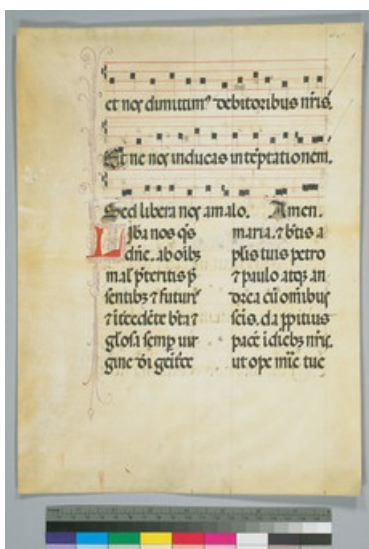 et nos dimittim⁹ debitoribus nr̃is.
Et ne nos inducas in tẽptationem.
Sed libera nos a malo. Amen.
Liba nos q̃s
dñe. ab oĩbꝫ
mal̃ p̃teritis p̃
sentibꝫ ⁊ futuris
⁊ ĩtcedẽte bt̃a ⁊
gl̃osa semꝑ uir
gine dĩ
maria. ⁊ bt̃is a
pl̃is tuis petro
⁊ paulo atqꝫ an
drea cũ omĩbus
sc̃is. da ꝓpitius
pacẽ ĩ diebꝫ nr̃is.
ut ope mĩe tue